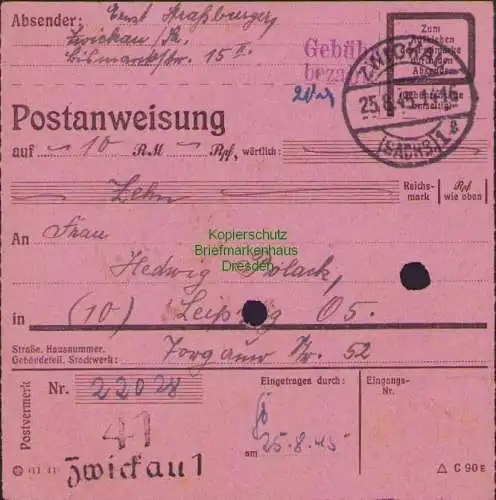 Absender: Ernst Straßburger,
Zwickau/Sa.
Bismarckstr. 15 II.
Gebühr
bezahlt
Zum
Aufkleben
der Freimarke
ZWICKAU
25.8.45
(SACHS) 1
Postanweisung
auf 10 RM Rpf, wörtlich:
Zehn
Reichs-
mark
Rpf
wie oben
An Frau
Kopierschutz
Briefmarkenhaus
Dresden
Hedwig Polack,
in (10) Leipzig O5.
Straße, Hausnummer,
Gebäudeteil, Stockwerk:
Torgauer Str. 52
Postvermerk
Nr. 22028
Eingetragen durch:
Eingangs-
Nr.
41
am 25.8.45
Zwickau 1
C 90 e